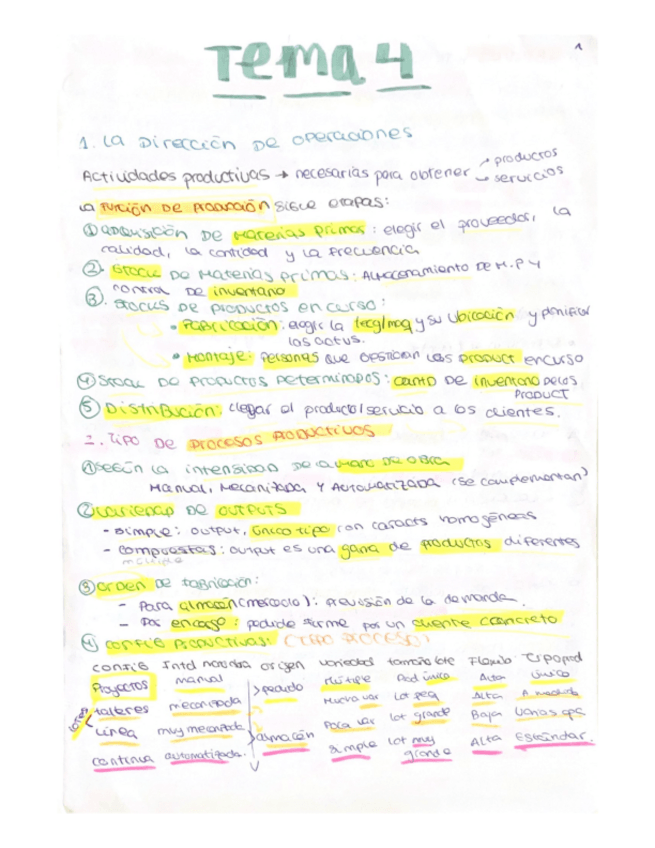 Tema 4
1
1. La Dirección de operaciones
Actividades productivas → necesarias para obtener → productos
→ servicios
La Función de Producción sigue etapas:
① adquisición de materias primas: elegir el proveedor, la
calidad, la cantidad y la frecuencia
②. Stock de Materias primas: Almacenamiento de M.P y
control de inventario
③. Stocks de productos en curso:
• Fabricación: elegir la tecg/maq y su ubicación y planificar
los activs.
• Montaje: personas que gestionan los product en curso
④ Stock de productos determinados: de inventario de los
product
⑤ Distribución: llegar el producto/servicio a los clientes.
2. Tipo de procesos productivos
① según la intensidad de la mano de obra
Manual, Mecanizada y Automatizada (se complementan)
② variedad de outputs
- simple: output, único tipo con caracts homogéneas
- compuestas: output es una gama de productos diferentes
múltiple
③ orden de fabricación:
- Para almacén (mercado): previsión de la demanda.
- Por encargo: pedido firme por un cliente concreto
④ config productivas: (TIPO PROCESO)
config Intd manobra origen variedad tamaño lote Flexib Tipoprod
Proyectos manual > pedido múltiple Ped único Alta único
lotes talleres mecanizada Mucha var Lot peq Alta A medida
Línea muy mecanizada almacén Poca var lot grande Baja Varias ops
continua automatizada. simple Lot muy grande Alta Estándar.